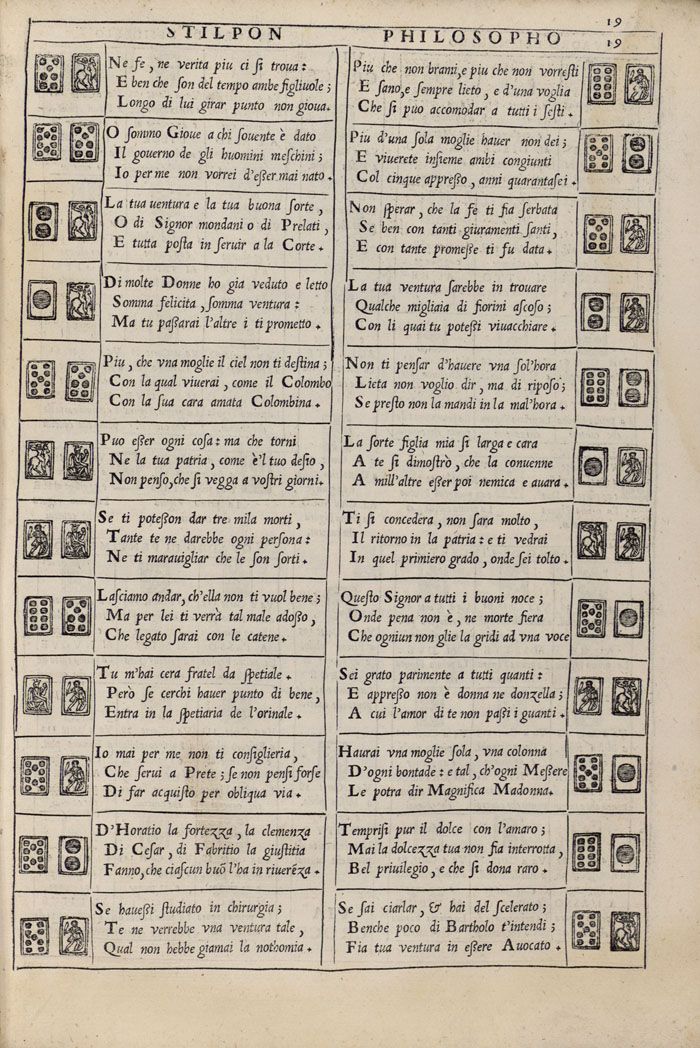 19
STILPON PHILOSOPHO 19
Ne fe, ne verita piu ci si troua:
E ben che son del tempo ambe figliuole;
Longo di lui girar punto non gioua.
O sommo Gioue a chi souente è dato
Il gouerno de gli huomini meschini;
Io per me non vorrei d'eßer mai nato.
La tua uentura e la tua buona sorte,
O di Signor mondani o di Prelati,
E tutta posta in seruir a la Corte.
Di molte Donne ho gia veduto e letto
Somma felicita, somma ventura:
Ma tu paßarai l'altre i ti prometto.
Piu, che vna moglie il ciel non ti destina;
Con la qual viuerai, come il Colombo
Con la sua cara amata Colombina.
Puo eßer ogni cosa: ma che torni
Ne la tua patria, come è'l tuo desio,
Non penso, che si vegga a vostri giorni.
Se ti poteßon dar tre mila morti,
Tante te ne darebbe ogni persona:
Ne ti marauigliar che le son sorti.
Lasciamo andar, ch'ella non ti vuol bene;
Ma per lei ti verrà tal male adoßo,
Che legato sarai con le catene.
Tu m'hai cera fratel da spetiale.
Però se cerchi hauer punto di bene,
Entra in la spetiaria de l'orinale.
Io mai per me non ti consiglieria,
Che serui a Prete; se non pensi forse
Di far acquisto per obliqua via.
D'Horatio la fortezza, la clemenza
Di Cesar, di Fabritio la giustitia
Fanno, che ciascun buō l'ha in riuerēza.
Se haueßi studiato in chirurgia;
Te ne verrebbe vna ventura tale,
Qual non hebbe giamai la nothomia.
Piu che non brami, e piu che non vorresti
E sano, e sempre lieto, e d'una voglia
Che si puo accomodar a tutti i sesti.
Piu d'una sola moglie hauer non dei;
E viuerete insieme ambi congiunti
Col cinque appreßo, anni quarantasei.
Non sperar, che la fe ti sia serbata
Se ben con tanti giuramenti santi,
E con tante promeße ti fu data.
La tua ventura sarebbe in trouare
Qualche migliaia di fiorini ascoso;
Con li quai tu poteßi viuacchiare.
Non ti pensar d'hauere vna sol'hora
Lieta non voglio dir, ma di riposo;
Se presto non la mandi in la mal'hora.
La sorte figlia mia si larga e cara
A te si dimostrò, che la conuenne
A mill'altre eßer poi nemica e auara.
Ti si concedera, non sara molto,
Il ritorno in la patria: e ti vedrai
In quel primiero grado, onde sei tolto.
Questo Signor a tutti i buoni noce;
Onde pena non è, ne morte fiera
Che ogniun non glie la gridi ad vna voce
Sei grato parimente a tutti quanti:
E appreßo non è donna ne donzella;
A cui l'amor di te non paßi i guanti.
Haurai vna moglie sola, vna colonna
D'ogni bontade: e tal, ch'ogni Meßere
Le potra dir Magnifica Madonna.
Temprisi pur il dolce con l'amaro;
Mai la dolcezza tua non fia interrotta,
Bel priuilegio, e che si dona raro.
Se sai ciarlar, & hai del scelerato;
Benche poco di Bartholo t'intendi;
Fia tua ventura in eßere Auocato.